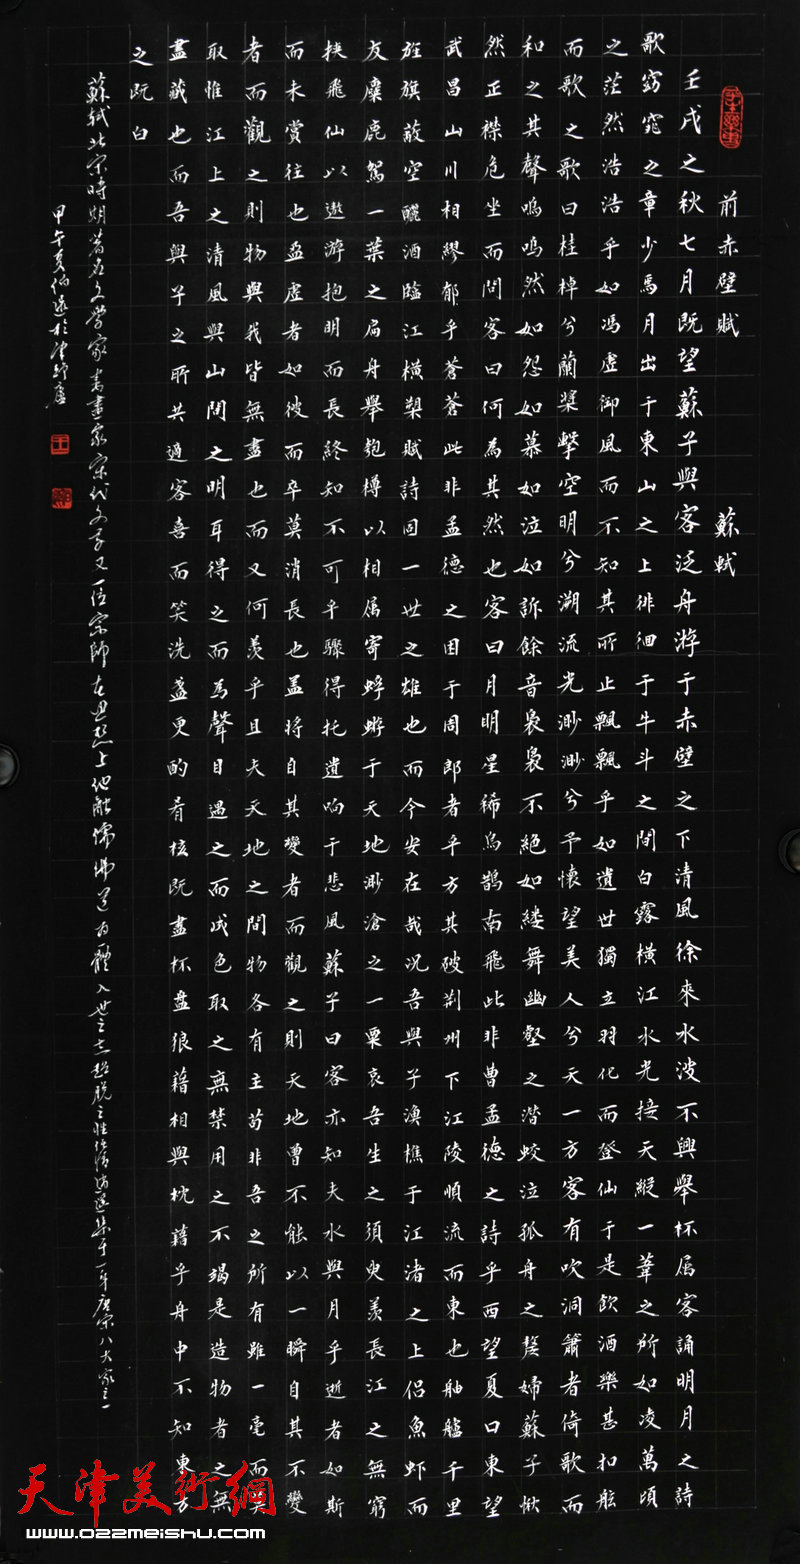 前赤壁賦 蘇軾
壬戌之秋七月既望蘇子與客泛舟游于赤壁之下清風徐來水波不興舉杯屬客誦明月之詩
歌窈窕之章少焉月出于東山之上徘徊于牛斗之間白露橫江水光接天縱一葦之所如凌萬頃
之茫然浩浩乎如馮虛御風而不知其所止飄飄乎如遺世獨立羽化而登仙于是飲酒樂甚扣舷
而歌之歌曰桂棹兮蘭槳擊空明兮溯流光渺渺兮予懷望美人兮天一方客有吹洞簫者倚歌而
和之其聲嗚嗚然如怨如慕如泣如訴餘音裊裊不絕如縷舞幽壑之潛蛟泣孤舟之嫠婦蘇子愀
然正襟危坐而問客曰何為其然也客曰月明星稀烏鵲南飛此非曹孟德之詩乎西望夏口東望
武昌山川相繆郁乎蒼蒼此非孟德之困于周郎者乎方其破荆州下江陵順流而東也舳艫千里
旌旗蔽空釃酒臨江橫槊賦詩固一世之雄也而今安在哉況吾與子漁樵于江渚之上侣魚虾而
友麋鹿駕一葉之扁舟舉匏樽以相屬寄蜉蝣于天地渺滄之一粟哀吾生之須臾羨長江之無窮
挾飛仙以遨游抱明而長終知不可乎驟得托遺响于悲風蘇子曰客亦知夫水與月乎逝者如斯
而未嘗往也盈虛者如彼而卒莫消長也盖將自其變者而觀之則天地曾不能以一瞬自其不變
者而觀之則物與我皆無盡也而又何羨乎且夫天地之間物各有主苟非吾之所有雖一毫而莫
取惟江上之清風與山間之明耳得之而為聲目遇之而成色取之無禁用之不竭是造物者之無
盡藏也而吾與子之所共適客喜而笑洗盞更酌肴核既盡杯盘狼藉相與枕藉乎舟中不知東方
之既白
蘇軾北宋時期著名文学家書畫家宋代文学又一位宗師在思想上他融儒佛道為一體入世之志超脱之性 唐宋八大家之一
甲午夏伯 於津 唐
天津美術網
www.022meishu.com